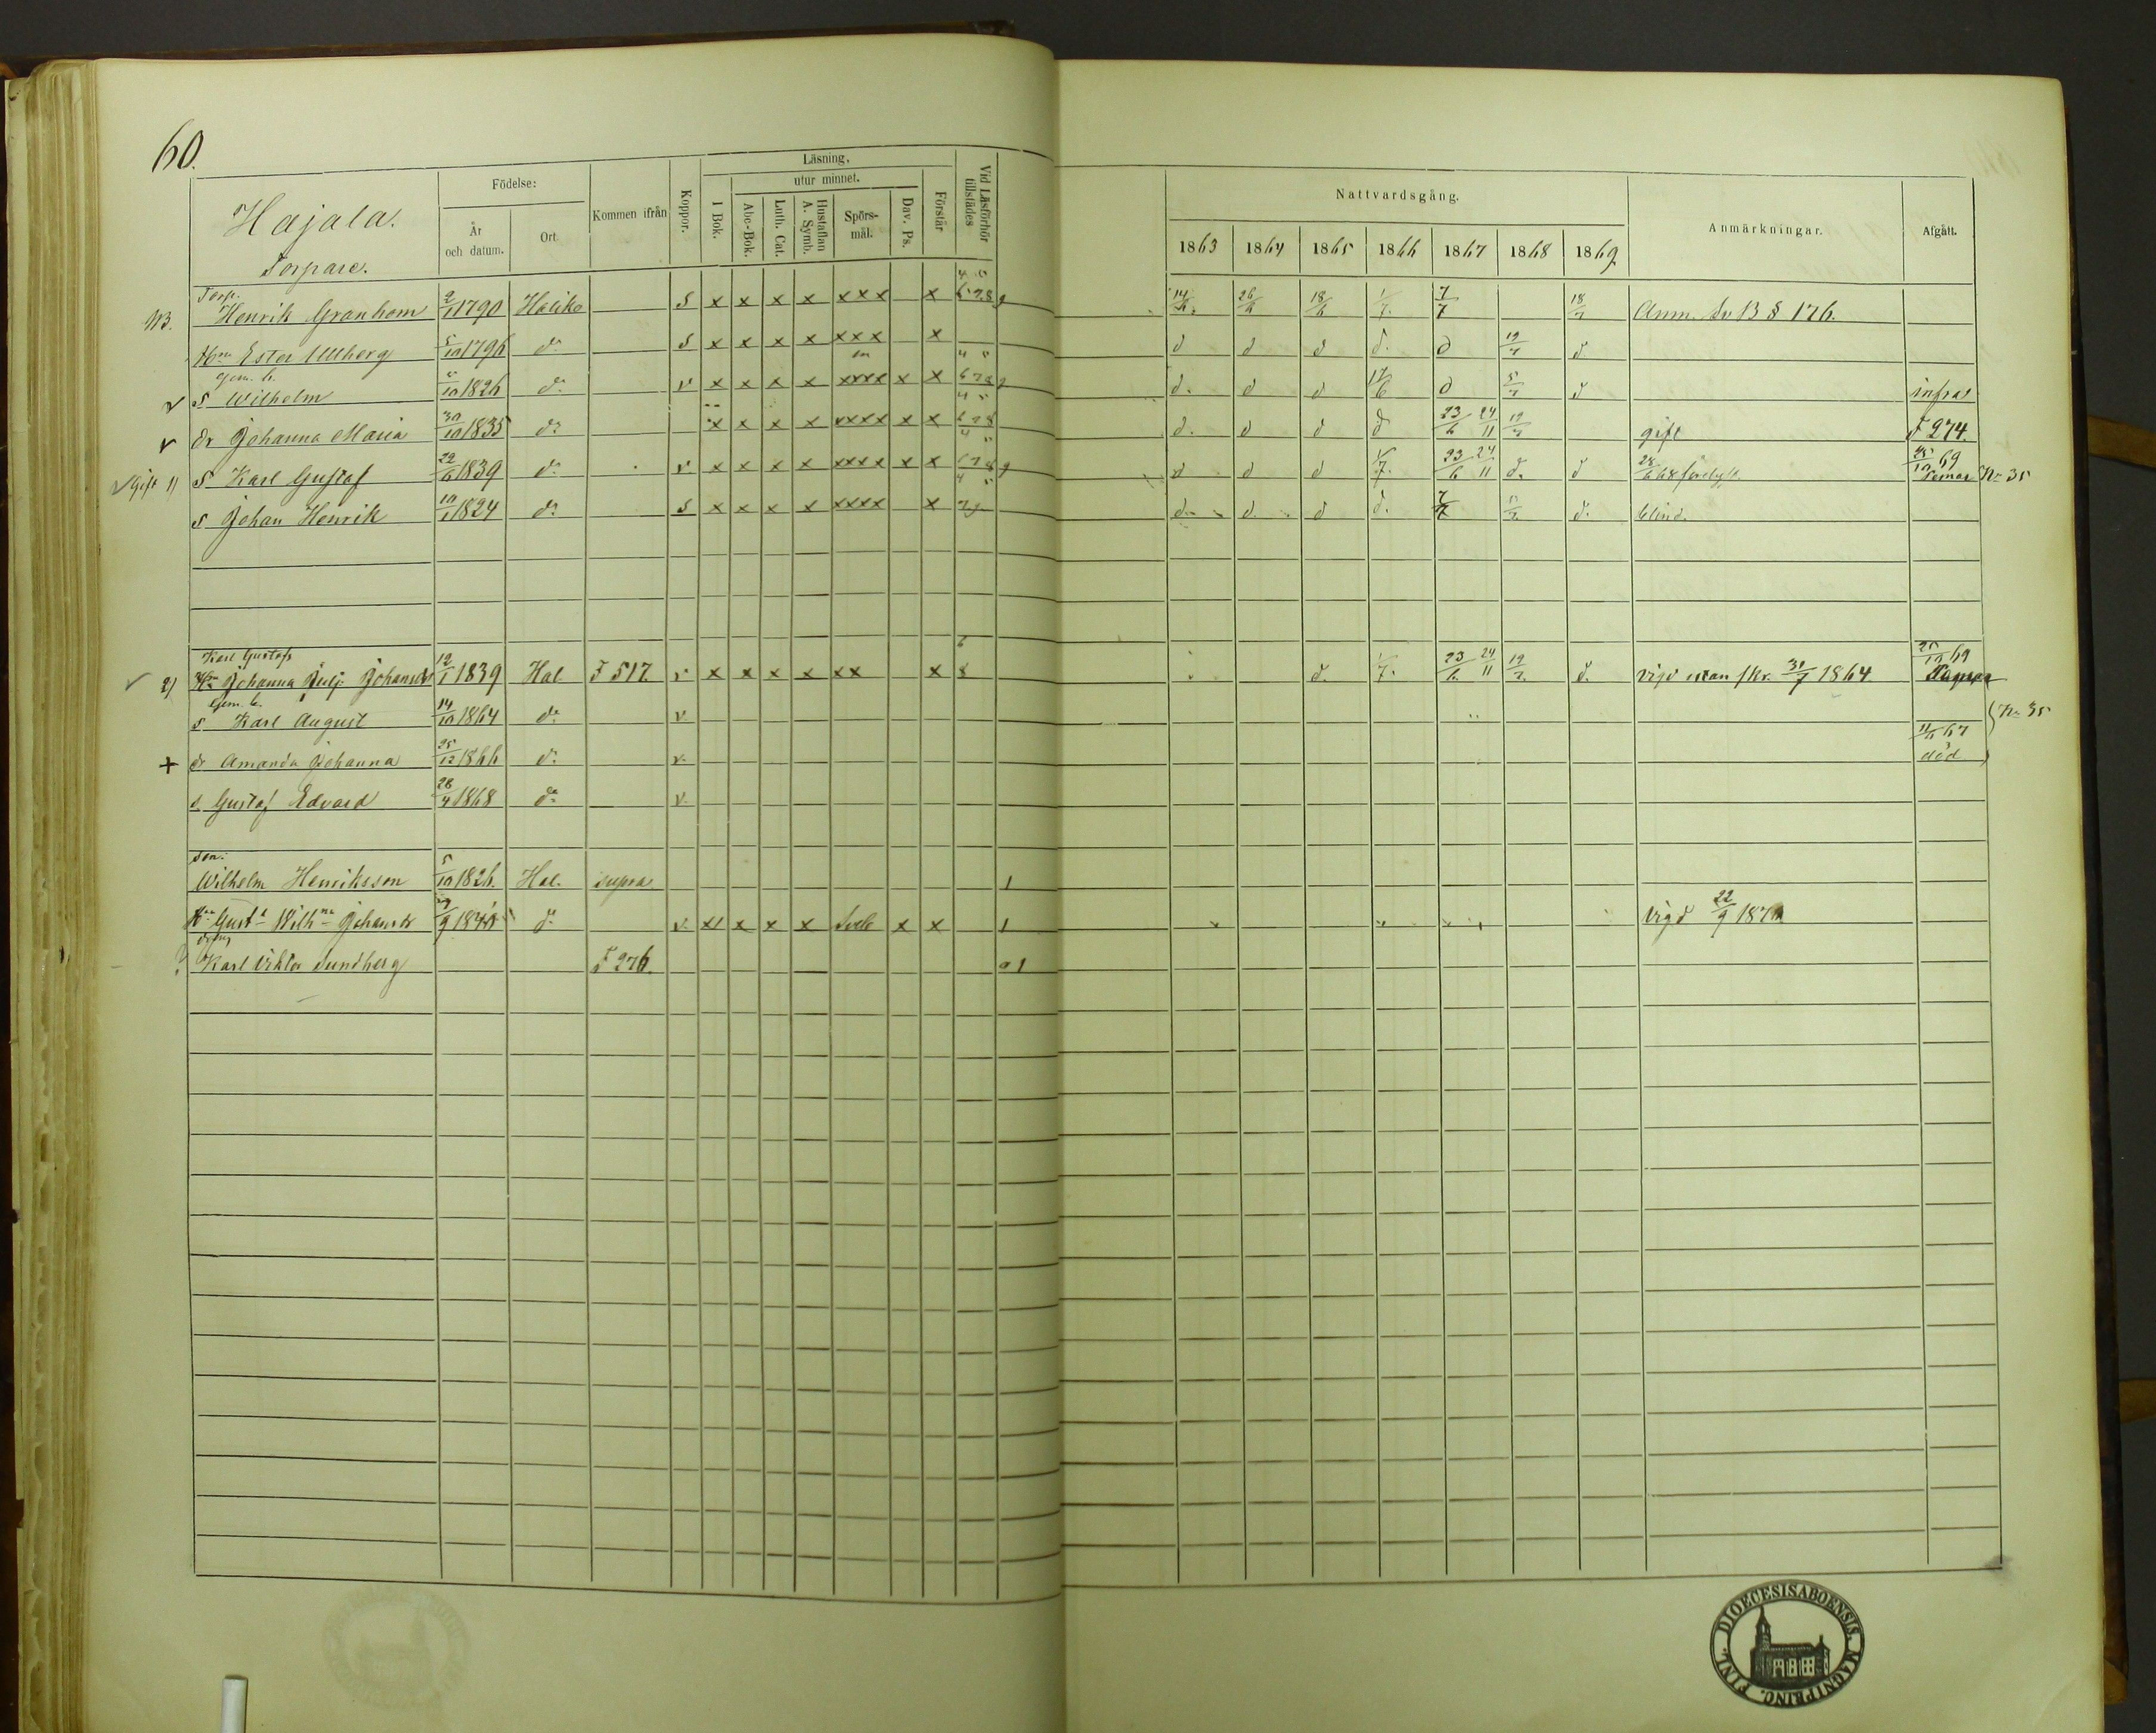 60.
Hajala.
Torpare.
Födelse:
År och datum.
Ort
Kommen ifrån
Koppor.
Läsning.
utur minnet.
I Bok.
Abc-Bok.
Luth. Cat.
Hustaflan A. Symb.
Spörs-mål.
Dav. Ps.
Förstår
Vid Läsförhör tillstädes
Nattvardsgång.
1863 1864 1865 1866 1867 1868 1869
Anmärkningar.
Afgått.
Torp.
Henrik Granhom 2/1 1790 Haliko S x x x x xxx x 678 26/6 18/6 1/7. 7/7 18/7 Anm. Sv B § 176.
Hu Ester Ullberg 5/10 1796 do S x x x x xxx x d d d d. d 19/7 d.
s Wilhelm 5/10 1826 do v x x x x xxxx x x 678 d. d d 17/6 d 5/7 d infra
v dr Johanna Maria 30/10 1835 do x x x x xxxx x x 678 d. d d d 23/6 24/11 19/7 gift F 274.
Gift 1) s Karl Gustaf 22/6 1839 do v x x x x xxxx x x 678 d d d 1/7. 23/6 24/11 d. d 69 Nr 35
s Johan Henrik 10/1 1824 do S x x x x xxxx x d d d d. 7/7 5/7 d. blind.
Karl Gustafs
2) Hu Johanna Julj. Johansdr 12/1 1839 Hal F 517 v x x x x xx x 8 d. 1/7. 23/6 24/11 19/7. d. vigd utan skr. 31/7 1864 25/10 69
s Karl August 14/10 1864 do v Nr 35
+ dr Amanda Johanna 25/12 1866 do v. 67 död
s Gustaf Edvard 28/4 1868 do v.
Son:
Wilhelm Henriksson 5/10 1826. Hal. supra 1
Hu Gust Wilhna Johansdr do v. x x x x x x 1 Vigd 22/9
Karl Viktor Sundberg F 276. 1
FINL. DIOECESIS ABOENSIS. MAGNI PRINC.